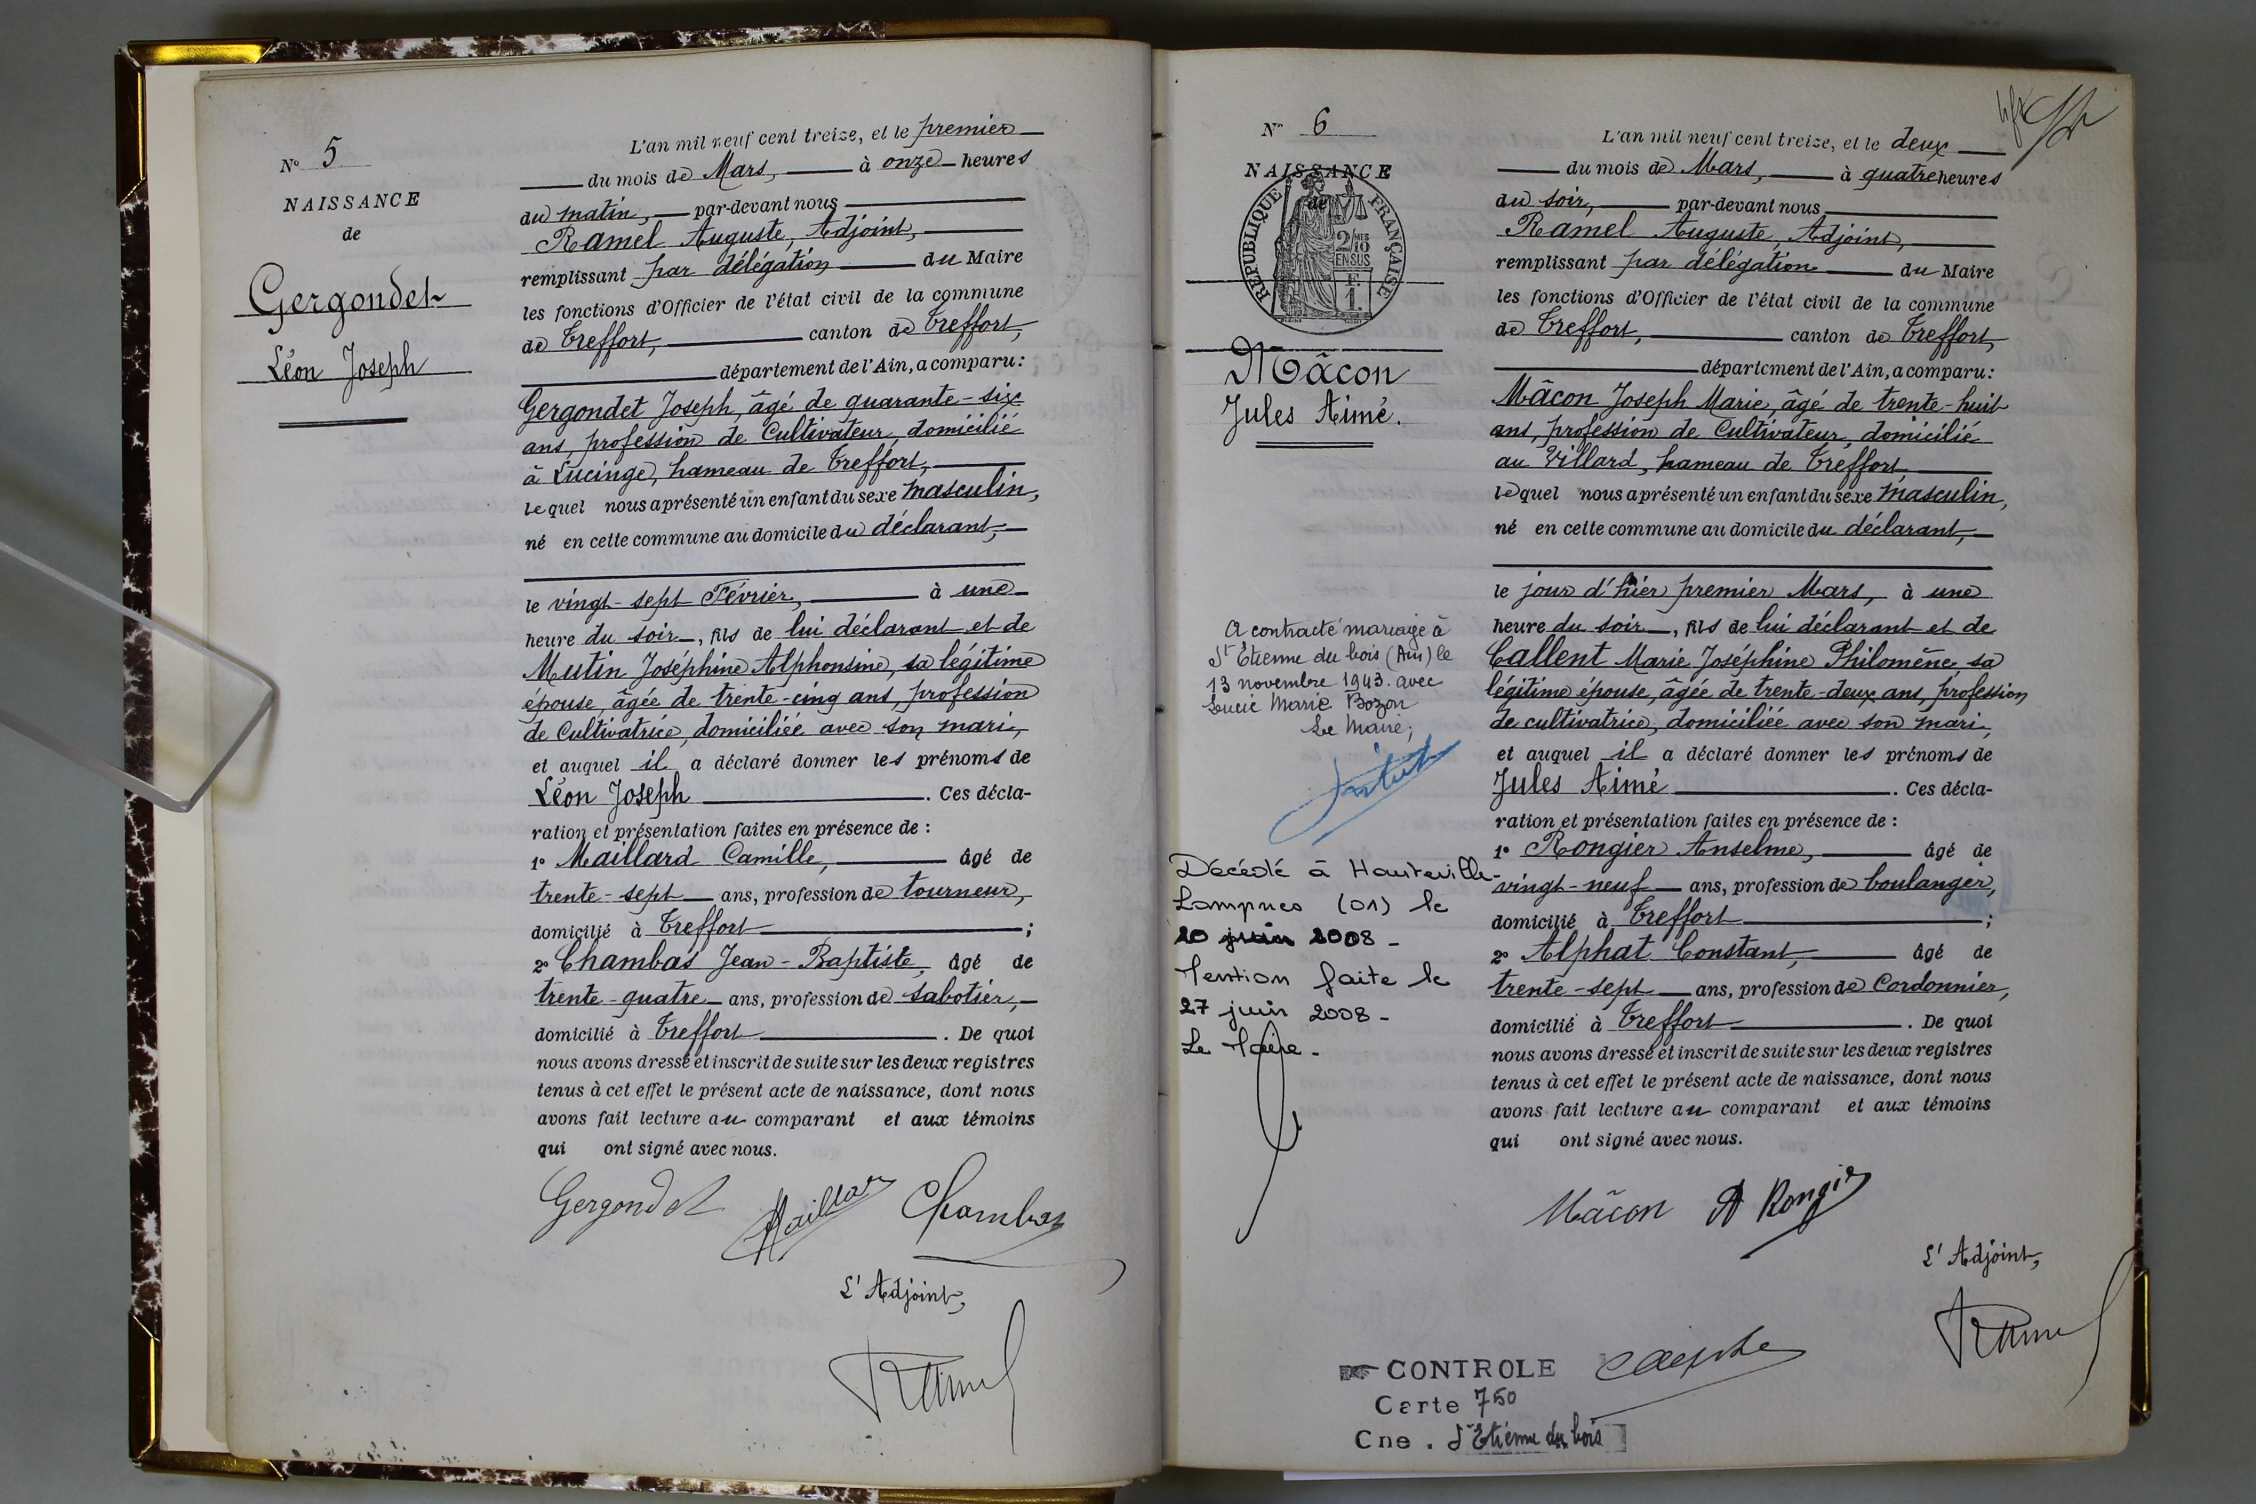 N° 5
NAISSANCE
de
Gergondet
Léon Joseph
L'an mil neuf cent treize, et le premier
du mois de Mars, à onze heures
du matin, par-devant nous
Ramel Auguste, Adjoint,
remplissant par délégation du Maire
les fonctions d'Officier de l'état civil de la commune
de Treffort, canton de Treffort,
département de l'Ain, a comparu:
Gergondet Joseph, âgé de quarante-six
ans, profession de Cultivateur, domicilié
à Lucinge, hameau de Treffort,
lequel nous a présenté un enfant du sexe masculin,
né en cette commune au domicile du déclarant,
le vingt-sept Février, à une
heure du soir, fils de lui déclarant et de
Mutin Joséphine Alphonsine, sa légitime
épouse, âgée de trente-cinq ans, profession
de Cultivatrice, domiciliée avec son mari,
et auquel il a déclaré donner les prénoms de
Léon Joseph. Ces décla-
ration et présentation faites en présence de :
1° Maillard Camille, âgé de
trente-sept ans, profession de tourneur,
domicilié à Treffort ;
2° Chambas Jean-Baptiste, âgé de
trente-quatre ans, profession de sabotier,
domicilié à Treffort. De quoi
nous avons dressé et inscrit de suite sur les deux registres
tenus à cet effet le présent acte de naissance, dont nous
avons fait lecture au comparant et aux témoins
qui ont signé avec nous.
Gergondet Maillard Chambas
L'Adjoint,
Ramel
N° 6
NAISSANCE
de
RÉPUBLIQUE FRANÇAISE
2/10 MES
EN SUS
F.
1.
Mâcon
Jules Aimé.
A contracté mariage à
St Étienne du bois (Ain) le
13 novembre 1943. avec
Lucie Marie Bozon
Le Maire;
Décédé à Hauteville-
Lompnes (01) le
20 juin 2008 -
Mention faite le
27 juin 2008 -
Le Maire -
L'an mil neuf cent treize, et le deux
du mois de Mars, à quatre heures
du soir, par-devant nous
Ramel Auguste, Adjoint,
remplissant par délégation du Maire
les fonctions d'Officier de l'état civil de la commune
de Treffort, canton de Treffort,
département de l'Ain, a comparu:
Mâcon Joseph Marie, âgé de trente-huit
ans, profession de Cultivateur, domicilié
au Villard, hameau de Treffort
lequel nous a présenté un enfant du sexe masculin,
né en cette commune au domicile du déclarant,
le jour d'hier premier Mars, à une
heure du soir, fils de lui déclarant et de
Callent Marie Joséphine Philomène sa
légitime épouse, âgée de trente-deux ans, profession
de cultivatrice, domiciliée avec son mari,
et auquel il a déclaré donner les prénoms de
Jules Aimé. Ces décla-
ration et présentation faites en présence de :
1° Rongier Anselme, âgé de
vingt-neuf ans, profession de boulanger,
domicilié à Treffort ;
2° Alphat Constant, âgé de
trente-sept ans, profession de Cordonnier,
domicilié à Treffort. De quoi
nous avons dressé et inscrit de suite sur les deux registres
tenus à cet effet le présent acte de naissance, dont nous
avons fait lecture au comparant et aux témoins
qui ont signé avec nous.
Mâcon A Rongier
L'Adjoint,
Ramel
CONTROLE
Carte 750
Cne. St Etienne du bois